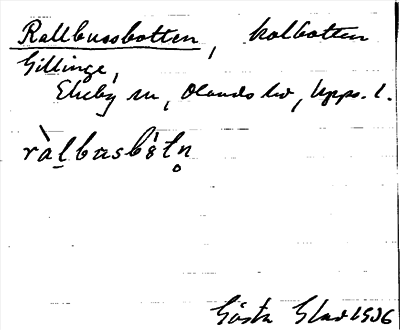 Rallbussbotten, kolbotten
Gillinge,
Ekeby sn, Olands hd, Upps. l.
ràl̲busbòtn̥
Gösta 1936